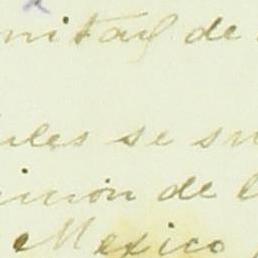 mitad de
ules se su
ición de l
Mexico